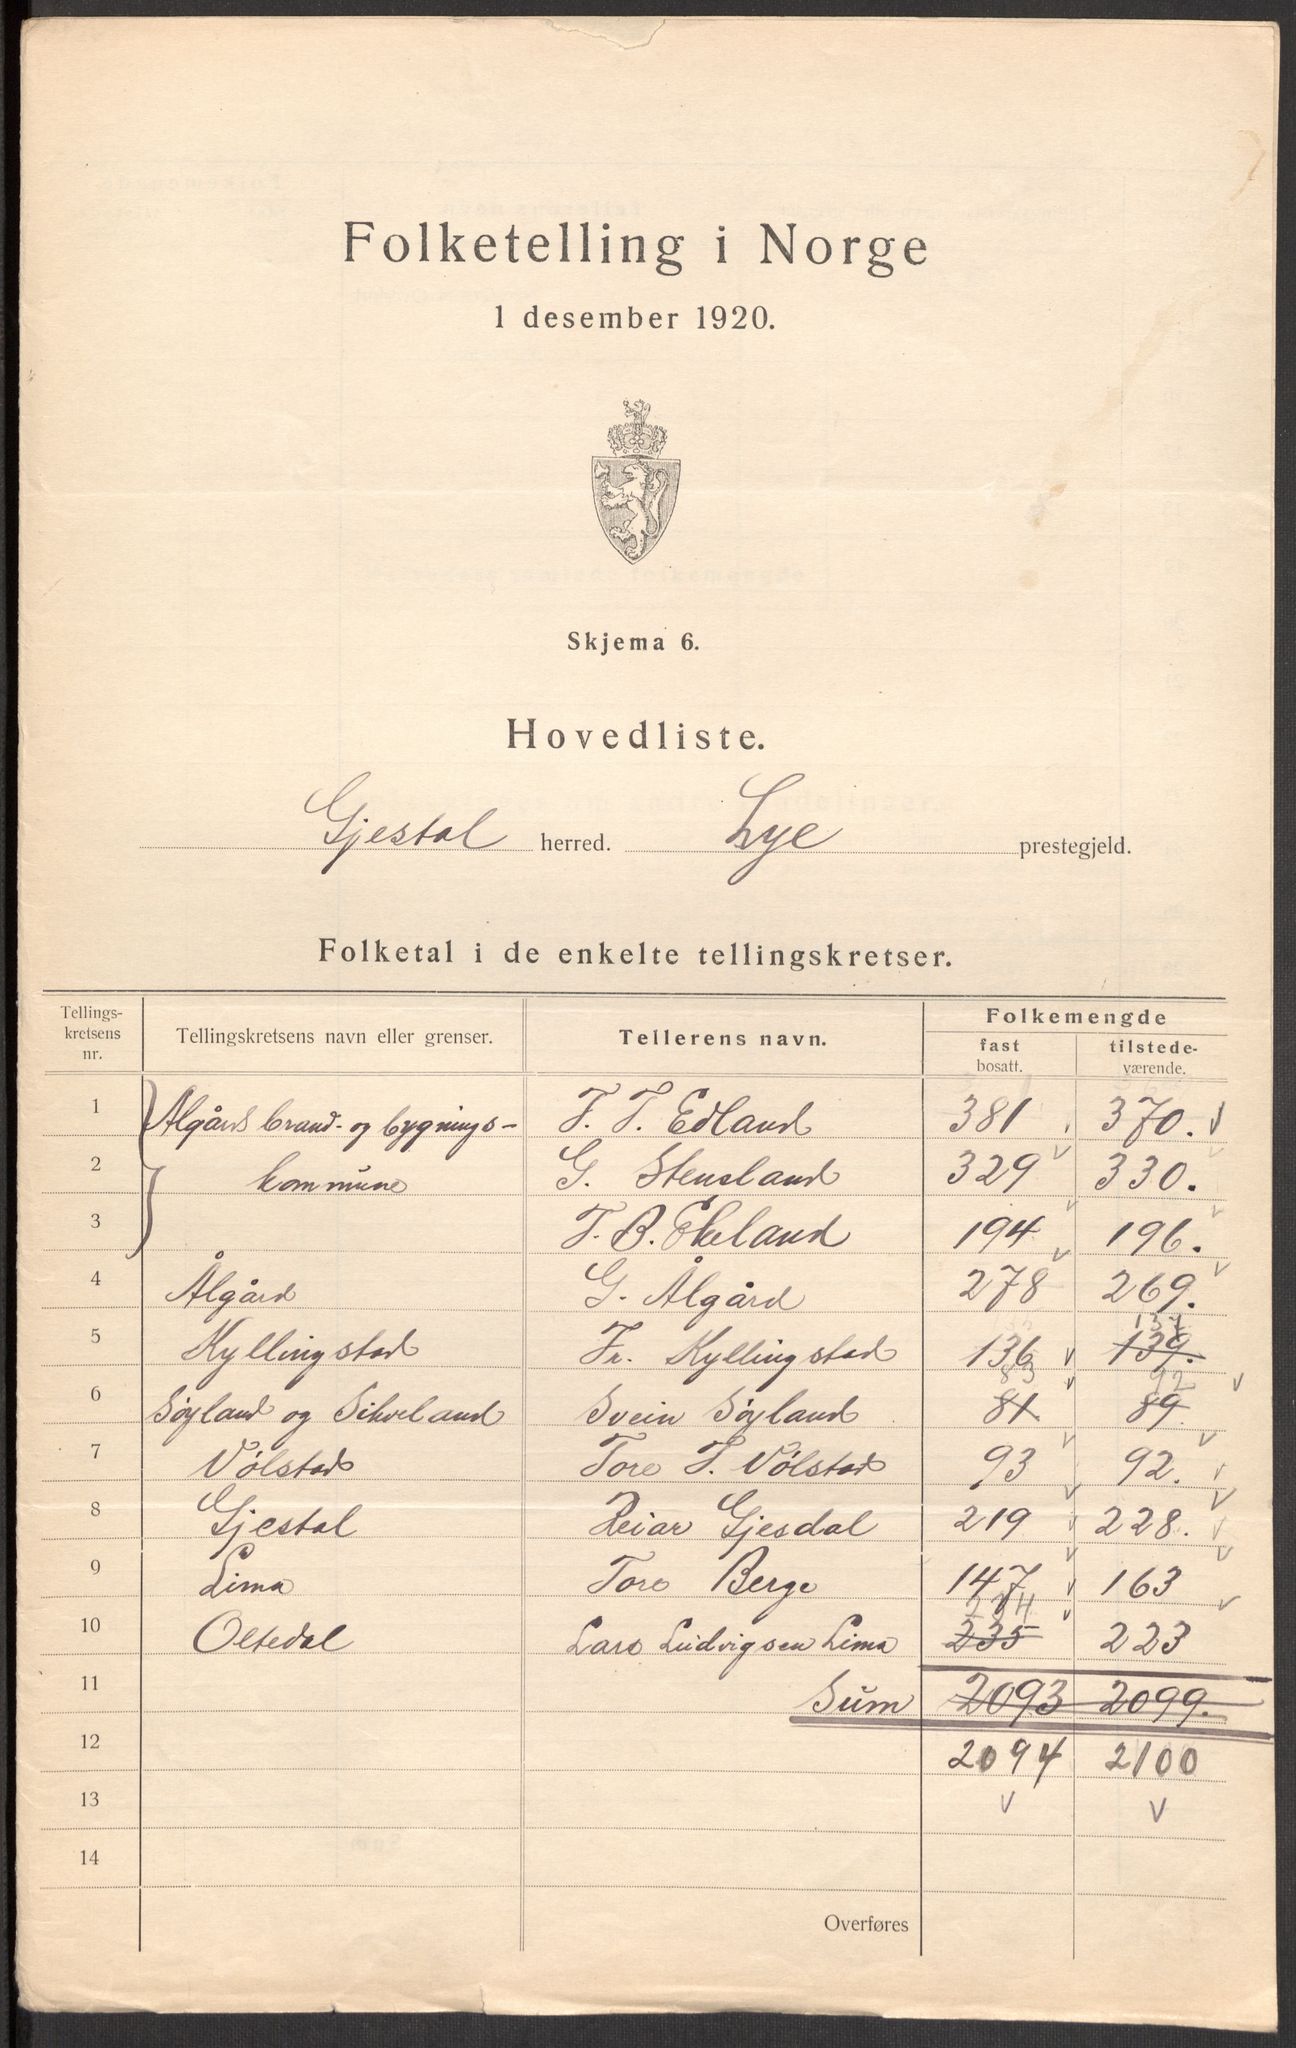 Folketelling i Norge
1 desember 1920.
Skjema 6.
Hovedliste.
Gjestal herred. Lye prestegjeld.
Folketal i de enkelte tellingskretser.
Tellings-
kretsens
nr.
Tellingskretsens navn eller grenser.
Tellerens navn.
Folkemengde
fast
bosatt.
tilstede-
værende.
1 Ålgårds brand- og bygnings- T. T. Edland 381 370.
2 kommune G. Stensland 329 330.
3 T. B. Ekeland 194 196.
4 Ålgård G. Ålgård 278 269.
137
5 Kyllingstad Fr. Kyllingstad 136 139.
83 92
6 Søyland og Sikveland Svein Søyland 81 89.
7 Vølstad Tore T. Vølstad 93 92.
8 Gjestal Reiar Gjesdal 219 228.
9 Lima Tore Berge 147 163
234
10 Oltedal Lars Ludvigsen Lima 235 223
11 Sum 2093 2099.
12 2094 2100
13
14
Overføres